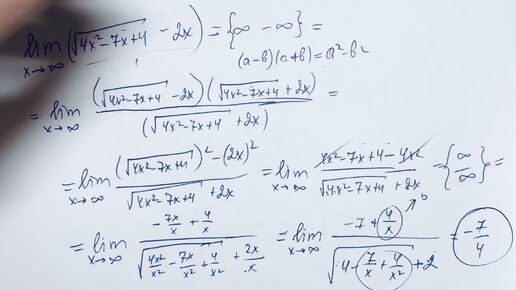 lim x→∞ (√(4x²-7x+4) - 2x) = {∞ - ∞} =
(a-b)(a+b) = a²-b²
= lim x→∞ (√(4x²-7x+4) - 2x)(√(4x²-7x+4) + 2x) / (√(4x²-7x+4) + 2x) =
= lim x→∞ ((√(4x²-7x+4))² - (2x)²) / (√(4x²-7x+4) + 2x) = lim x→∞ (4x²-7x+4-4x²) / (√(4x²-7x+4) + 2x) = {∞/∞} =
= lim x→∞ (-7x/x + 4/x) / (√(4x²/x² - 7x/x² + 4/x²) + 2x/x) = lim x→∞ (-7 + 4/x → 0) / (√(4 - 7/x + 4/x²) + 2) = -7/4